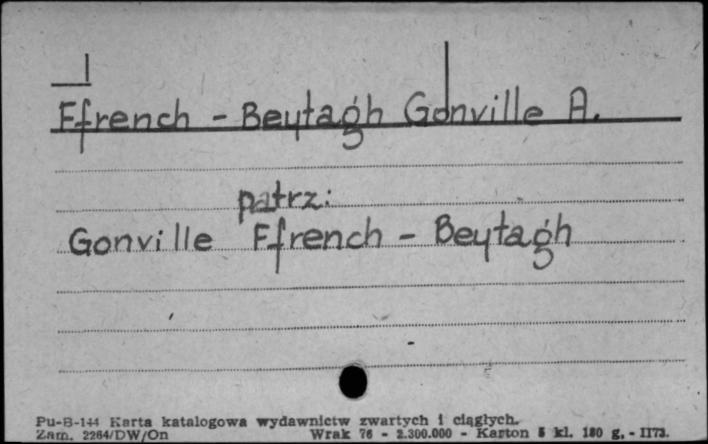 Ffrench - Beytagh Gonville A.
patrz:
Gonville Ffrench - Beytagh
Pu-B-144 Karta katalogowa wydawnictw zwartych i ciągłych.
Zam. 2264/DW/On Wrak 76 - 2.300.000 - Karton 5 kl. 180 g. - II73.